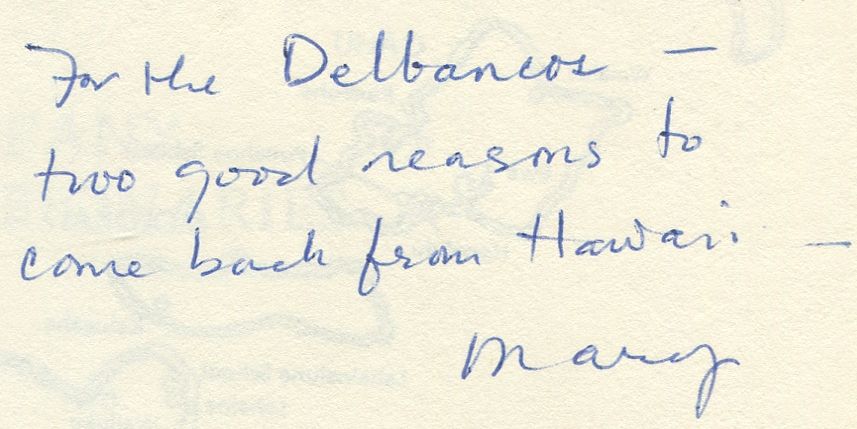 For the Delbancos —
two good reasons to
come back from Hawaii —
Mary